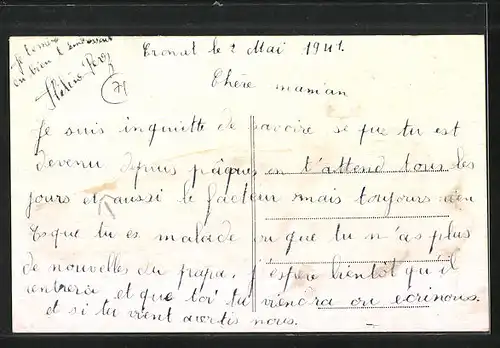 Je termine
en
Cronat le 2 Mai 1941.
71
Chère maman
Je suis inquitte de savoire se que tu est
devenu depuis pâques en t'attend tous les
jours et aussi le facteur mais toujours rien
Esque tu es malade ou que tu n'as plus
de nouvelles du papa, j'espère bientôt qu'il
rentrera et que toi tu viendra ou ecrinous.
et si tu vient avertis nous.